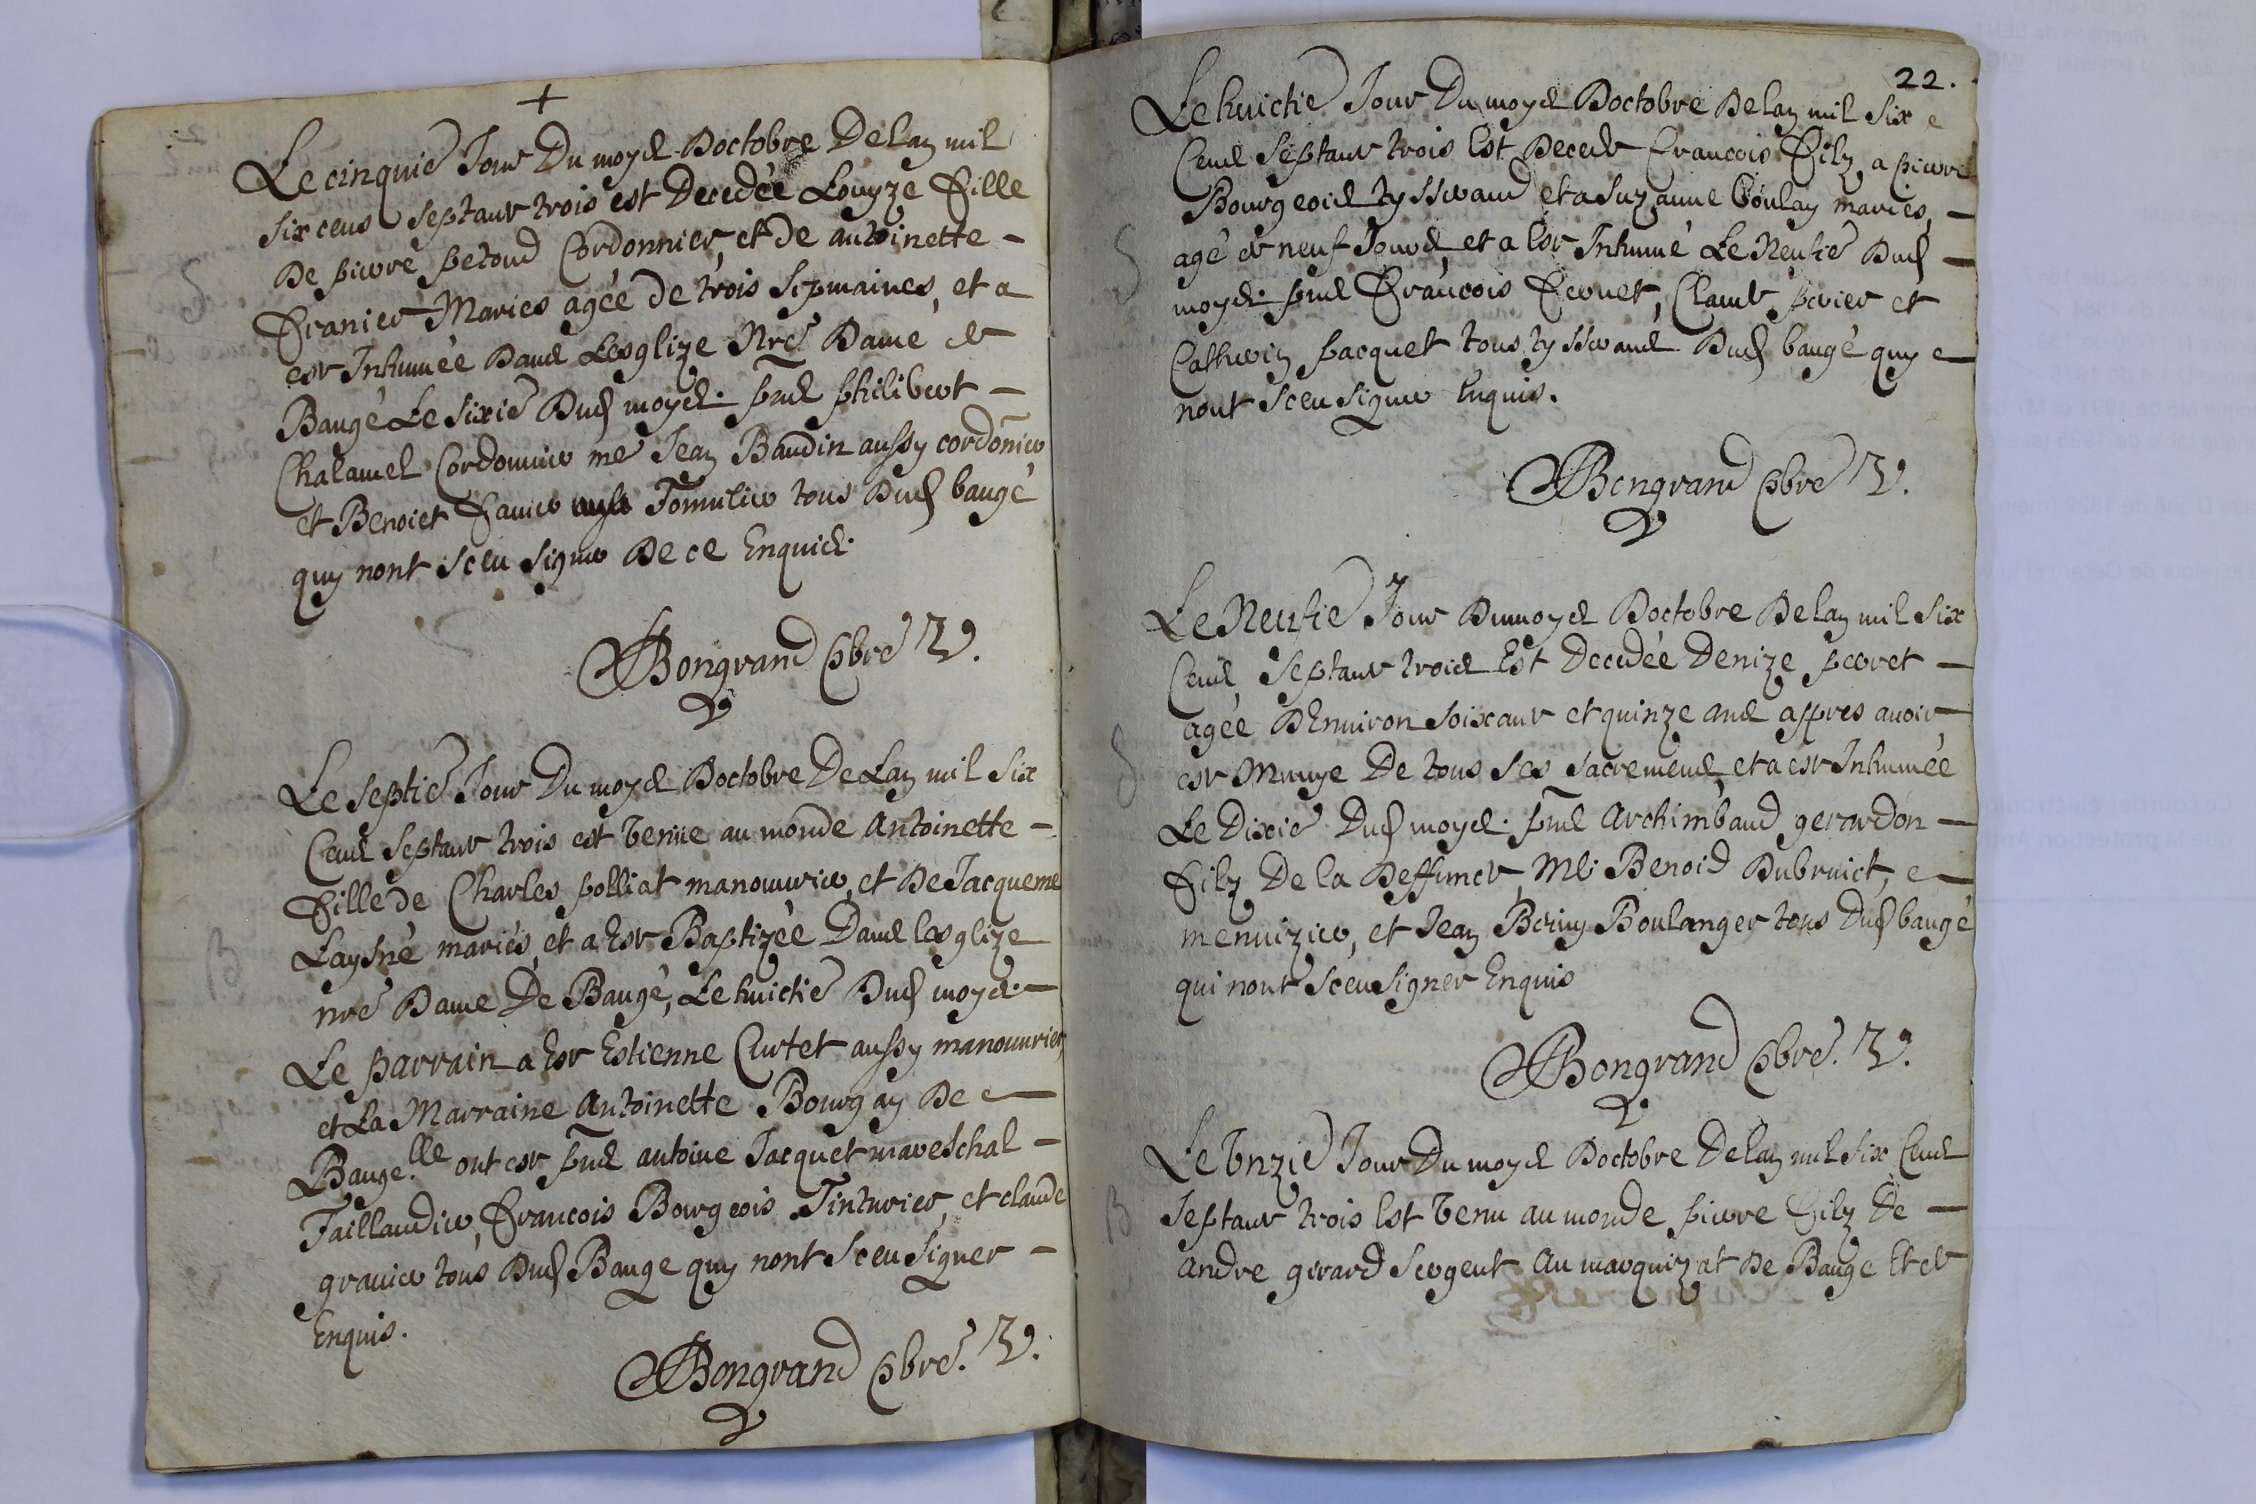 +
Le cinquie Jour Du moys Doctobre De lan mil
six cens septante trois est Decedée Louyze Fille
De pierre petond Cordonnier, et de antoinette -
Franier Maries agée de trois sepmaines, et a
este Inhumée Dans Lesglize Nre Dame de
Baugé Le sixie Dud moys. pnts philibert -
Chalamel Cordonnier me Jean Baudin aussy cordonier
et Benoict Favier Tomulier tous Dud baugé
quy nont sceu signer De ce Enquis.
Bongrand pbre V.
Le septie Jour Du moys Doctobre De Lan mil six
Cens septante trois est venue au monde Antoinette -
Fille de Charles polliat manouvrier, et De Jacqueme
Laysné mariés, et a Este Baptizée Dans lesglize
nre Dame De Baugé, Le huictie Dud moys. -
Le parrain a Este Estienne Curtet aussy manouvrier,
et La Marraine Antoinette Bourgay De -
Bauge. lle ont este pnts antoine Jacquet mareschal -
Taillandier, Francois Bourgeois Tinturier, et claude
gravier tous Dud Bauge quy nont sceu signer -
Enquis.
Bongrand pbre. V.
22.
Le huictie Jour Du moys Doctobre De lan mil six
Cens septante trois Est Decede Francois Filz a pierre
Bourgeois tysserand et a Suzanne Voulay mariés, -
agé de neuf Jours, et a Este Inhumé Le Neufie Dud -
moys. pnts Francois Fernet, Claude perier et
Cathrin pacquet tous tysserands Dud baugé quy
nont sceu signer Enquis.
Bongrand pbre V.
Le Neufie Jour Du moys Doctobre De lan mil six
Cens septante trois Est Decedée Denize perret -
agée DEnviron soixante et quinze ans appres avoir
este Munye De tous ses sacremens, et a este Inhumée
Le Dixie Dud moys. pnts Archimbaud gerardon -
Filz De la Deffuncte, Me Benoid Dubruict, -
menuizier, et Jean Boulanger tous Dud baugé
qui nont sceu signer Enquis
Bongrand pbre. V.
Le Unzie Jour Du moys Doctobre De lan mil six Cens
septante trois Est Venu au monde pierre Filz De -
andre girard sergent au marquizat De Bauge Et de